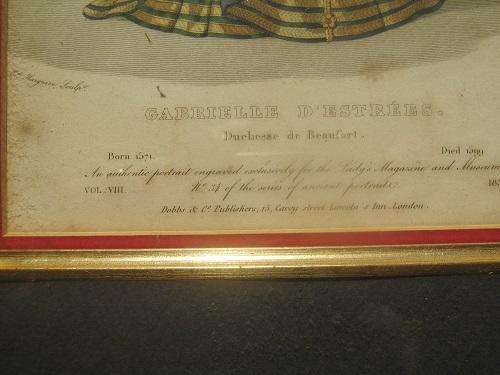 Sculpt.
GABRIELLE D'ESTRÉES.
Duchesse de Beaufort.
Born 1571. Died 1599.
An authentic portrait engraved exclusively for the Lady's Magazine and Museum
VOL. VIII. No. 34 of the series of ancient portraits. 183
Dobbs & Co. Publishers, 15, Carey street Lincoln's Inn. London.